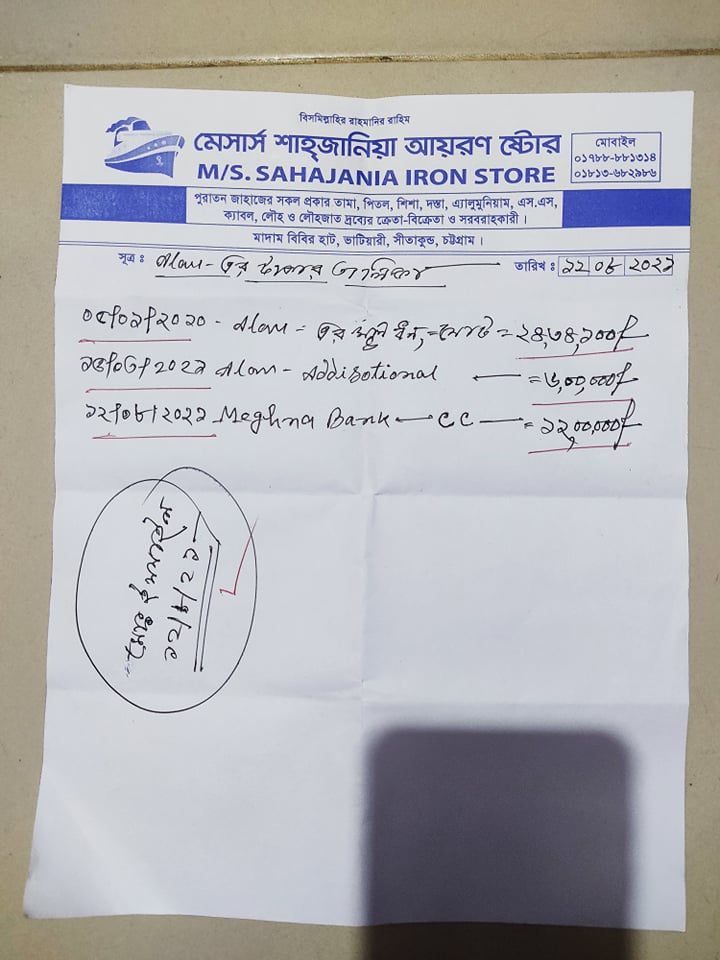 বিসমিল্লাহির রাহমানির রাহিম
মেসার্স শাহ্জানিয়া আয়রণ ষ্টোর
M/S. SAHAJANIA IRON STORE
মোবাইল
০১৭৮৮-৮৮১৩১৪
০১৮১৩-৬৮২৯৮৬
পুরাতন জাহাজের সকল প্রকার তামা, পিতল, শিশা, দস্তা, এ্যালুমুনিয়াম, এস.এস,
ক্যাবল, লৌহ ও লৌহজাত দ্রব্যের ক্রেতা-বিক্রেতা ও সরবরাহকারী ।
মাদাম বিবির হাট, ভাটিয়ারী, সীতাকুন্ড, চট্টগ্রাম ।
সূত্র : Alam - এর টাকার তালিকা
তারিখ : ১২ ০৮ ২০২১
২০২০ - Alam - এর মূল ধন, = মোট =
২০২১ Alam - Addisotional = ৬,০০,০০০/
১২/০৮/২০২১ Meghna Bank — CC — = ১২,০০,০০০/